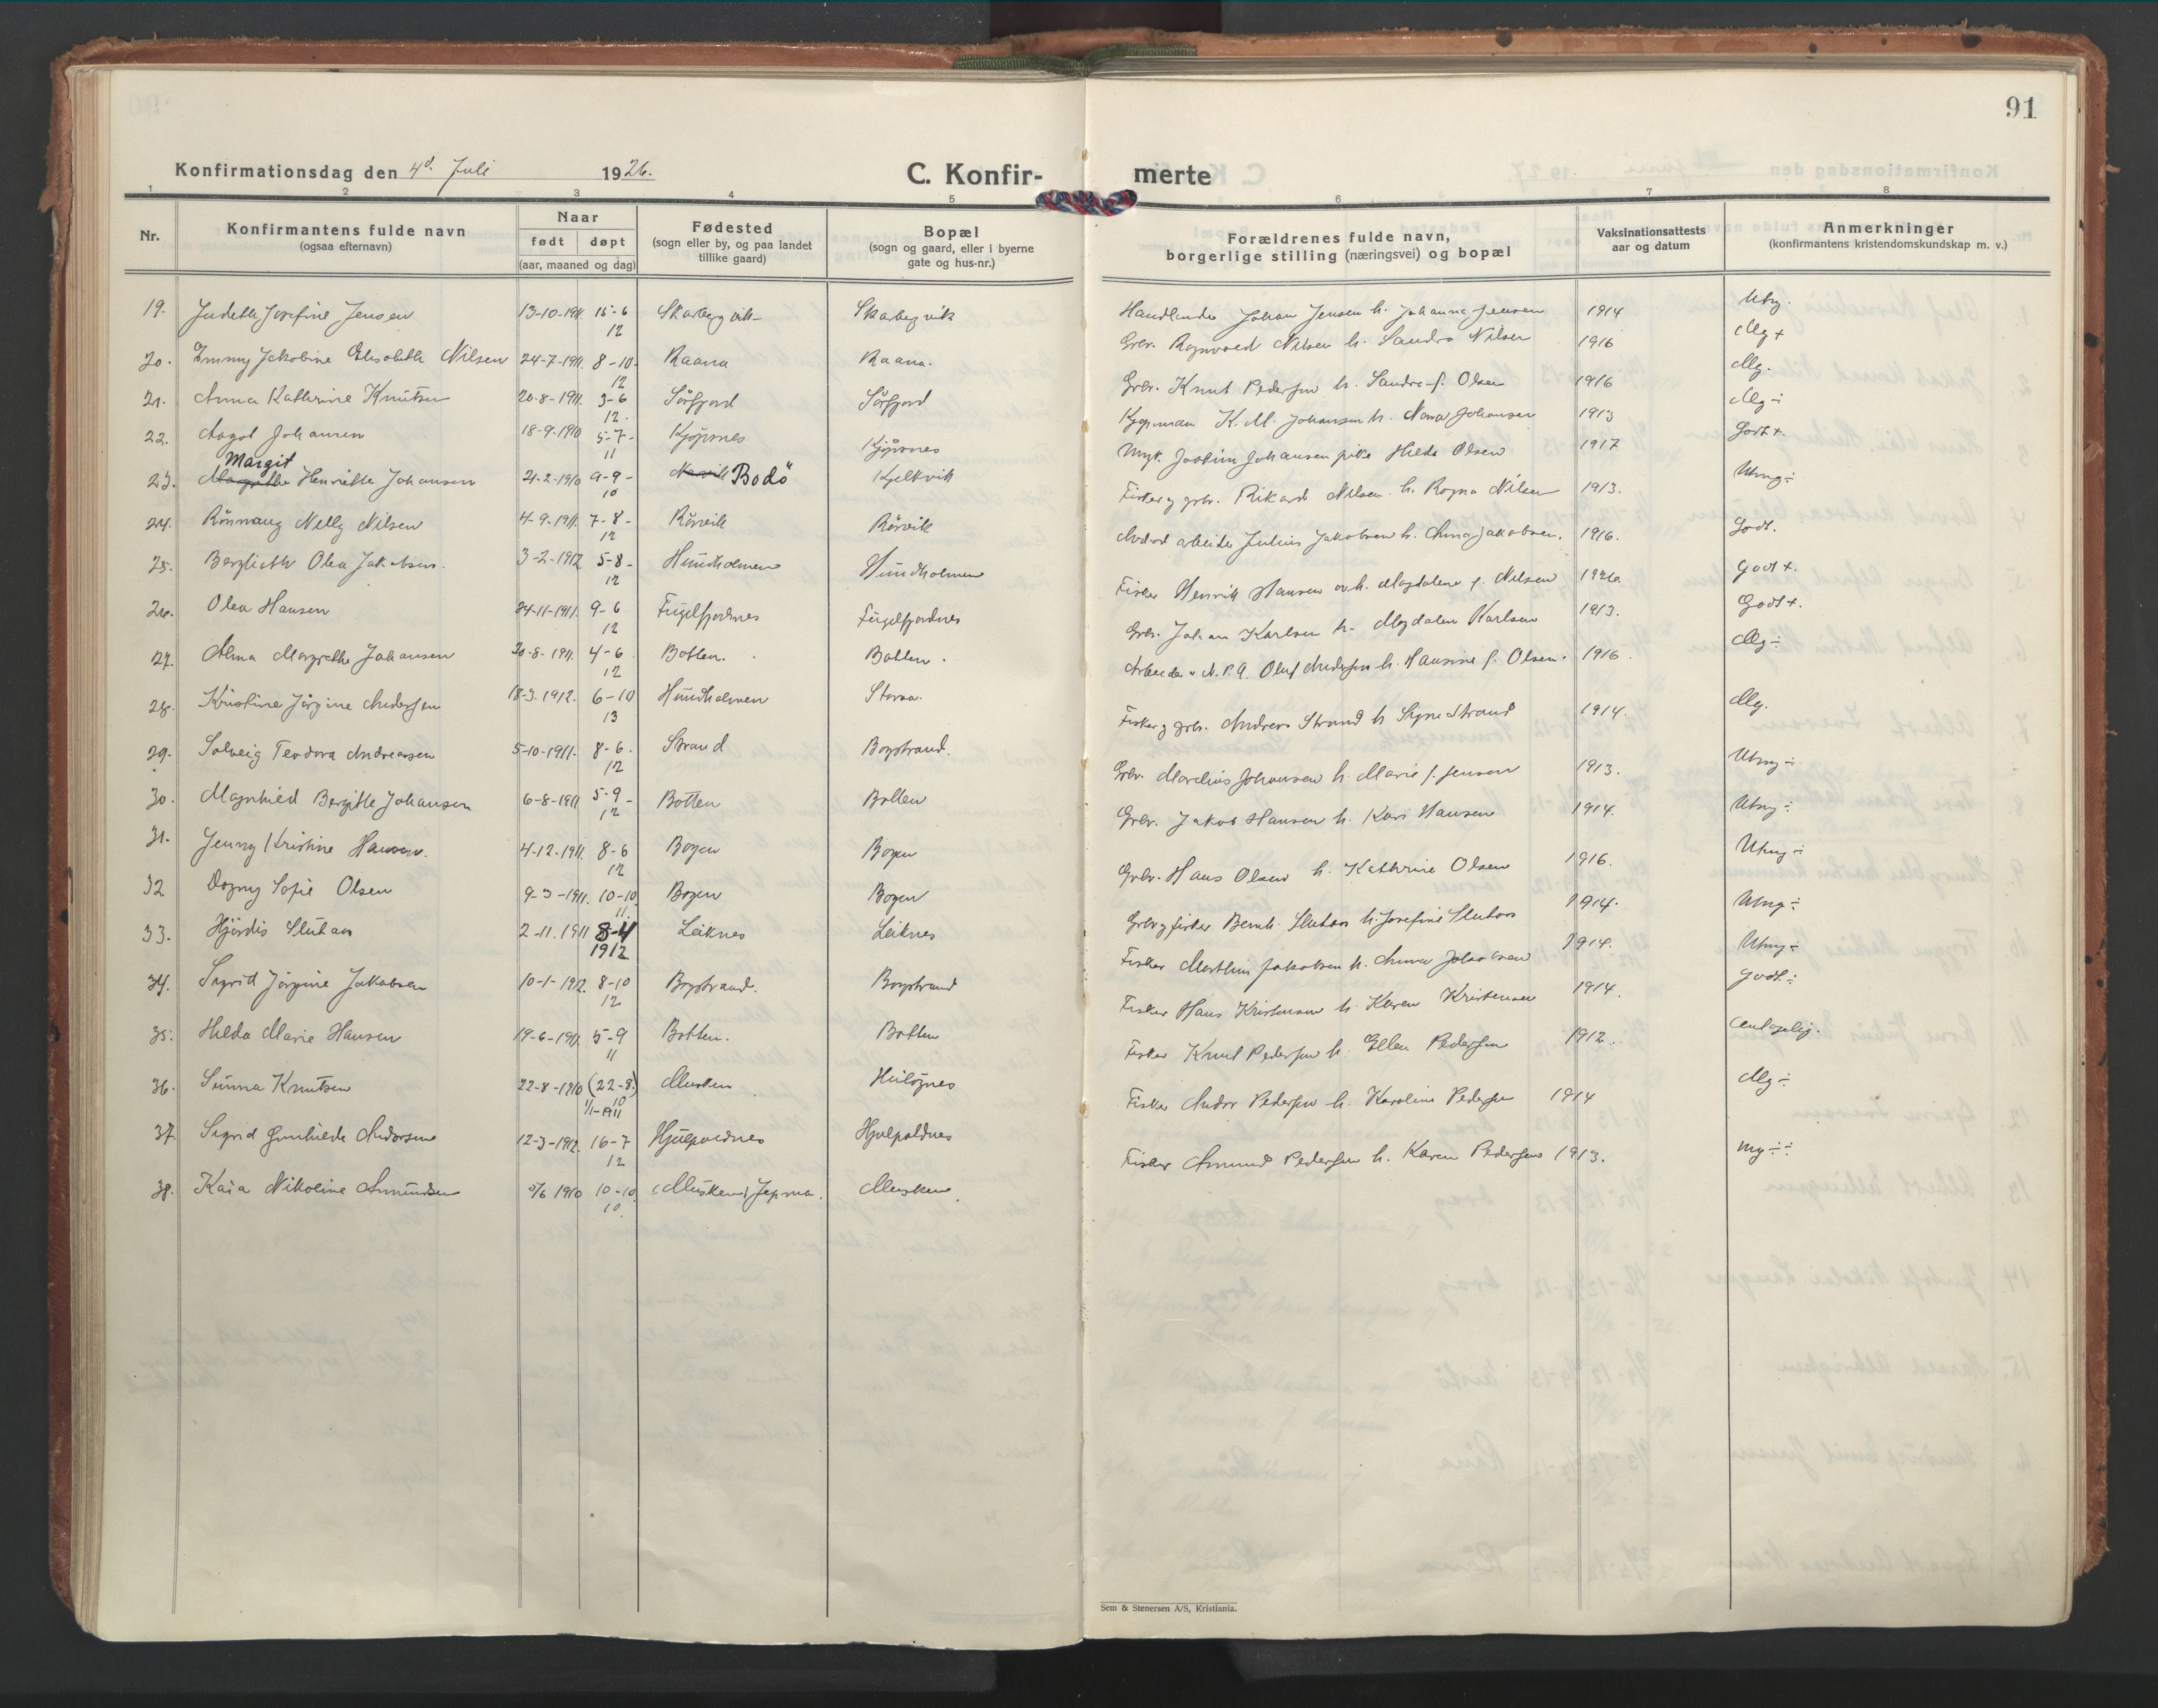 91
Konfirmationsdag den 4d. Juli 1926.
C. Konfir- merte
1 2 3 4 5 6 7 8
Nr.
Konfirmantens fulde navn
(ogsaa efternavn)
Naar
født døpt
(aar, maaned og dag)
Fødested
(sogn eller by, og paa landet
tillike gaard)
Bopæl
(sogn og gaard, eller i byerne
gate og hus-nr.)
Forældrenes fulde navn,
borgerlige stilling (næringsvei) og bopæl
Vaksinationsattests
aar og datum
Anmerkninger
(konfirmantens kristendomskundskap m. v.)
19. Judeth Josefine Jensen 13-10-1911. 15-6 12 Skarbergvik Skarbergvik Handlende Johan Jensen h. Johanna Jensen 1914 Utmg.
20. Emmy Jakobine Elisabeth Nilsen 24-7-1911. 8-10 12 Raana Raana. Grbr. Rognvald Nilsen h. Sandra Nilsen 1916 Mg+
21. Anna Kathrine Knutsen 20-8-1911. 3-6 12. Sörfjord Sörfjord Grbr. Knut Pedersen h. Sandra f. Olsen 1916 Mg.
22. Aagot Johansen 18-9-1910 5-7- 11 Kjöpsnes Kjöpsnes Kjøpman K. M. Johansen h. Nanna Johansen 1913 Mg÷
23. Margit Margithe Henriette Johansen 21-2-1910 9-9- 10 Narvik Bodö Kjelkvik Ungk. Joakim Johansen pike Hilda Olsen 1917 Godt+.
24. Rönnaug Nelly Nilsen 4-9-1911. 7-8- 12 Rörvik Rörvik Fisker og grbr. Rikard Nilsen h. Ragna Nilsen 1913. Utmg÷
25. Berglioth Olea Jakobsen. 3-2-1912 5-8- 12 Hundholmen Hundholmen arbeider Julius Jakobsen h. Anna Jakobsen. 1916. Godt.
26. Olea Hansen 24-11-1911. 9-6 12 Fugelfjordnes Fugelfjordnes Fisker Henrik Hansen h. Magdalene f. Nilsen 1926. Godt+.
27. Alma Margrethe Johansen 20-8-1911. 4-6 12 Botten. Botten. Grbr. Johan Karlsen h. Magdalen Karlsen 1913. Godt+.
28. Kristine Jörgine Andersen 18-3-1912. 6-10 13 Hundholmen Storaa. Arbeider Oluf Andersen h. Hansine f. Olsen. 1916. Mg÷
29. Solveig Teodora Andreassen 5-10-1911. 8-6. 12 Strand Bogstrand. Fisker g grb. Andreas Strand h Signe Strand 1914. Mg.
30. Magnhild Bergitte Johansen 6-8-1911 5-9- 12 Botten Botten Grbr. Marelius Johansen h. Marie f. Jensen 1913. Utmg÷
31. Jenny Kristine Hansen. 4-12-1911. 8-6 12 Bogen Bogen Grbr. Jakob Hansen h. Kari Hansen 1914. Utmg÷
32 Dagny Sofie Olsen 9-3-1911. 10-10 11. Bogen Bogen Grbr. Hans Olsen h. Kathrine Olsen 1916. Utmg÷
33. Hjördis Slutaas 2-11.1911 8-4 1912 Leiknes Leiknes Grbr g fisker Bernh. Slutaas h. Josefine Slutaas 1914. Utmg÷
34. Sigrid Jörgine Jakobsen 10-1-1912. 8-10 12 Bogstrand. Bogstrand Fisker Marthin Jakobsen h. Anna Jakobsen 1914. Utmg÷
35. Hilda Marie Hansen 19-6-1911. 5-9 11 Botten. Botten Fisker Hans Kristensen h. Karen Kristensen 1914. Godt÷
36. Sunna Knutsen 22-8-1910 (22-8) 10 1/1-1911 Musken Fisker Knut Pedersen h. Ellen Pedersen 1912.
37. Sigrid Gunhilda Andersen 12-3-1912. 16-7 12 Hjulpaldnes Hjulpaldnes Fisker Andor Pedersen h. Karoline Pedersen 1914 Mg÷
38. Kaia Nikoline Amundsen 5/6 1910 10-10 10. Musken, Musken Fisker Amund Pedersen h. Karen Pedersen 1913. Mg÷÷
Sem & Stenersen A/S, Kristiania.